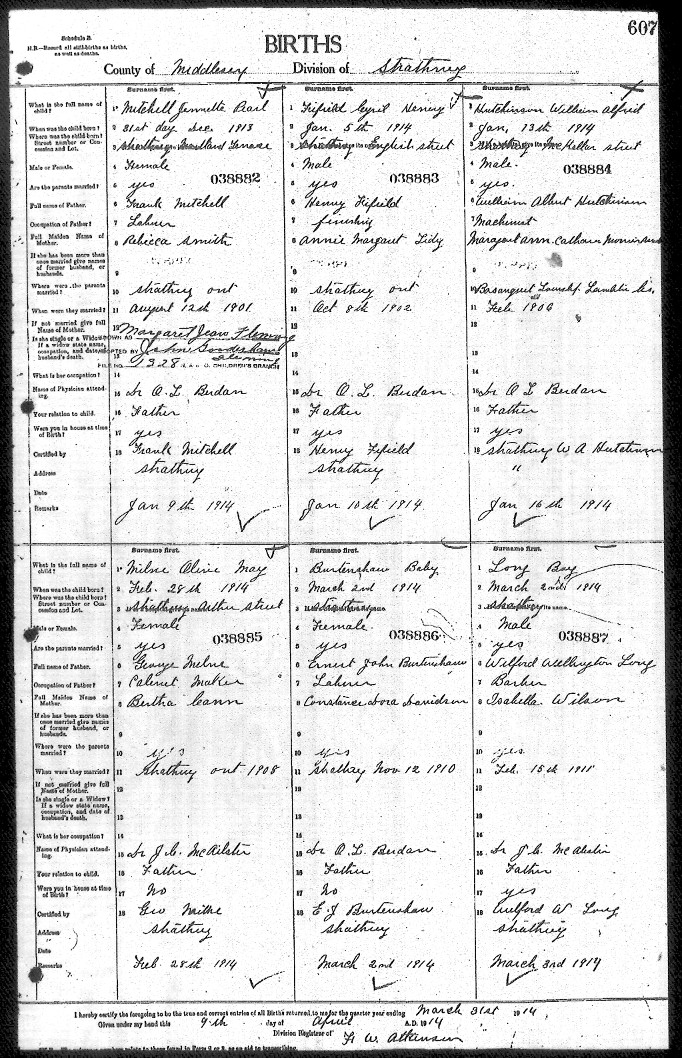 607
Schedule B.
N.B.—Record all still-births as births, as well as deaths.
BIRTHS
County of Middlesex Division of Strathroy
Surname first. Surname first. Surname first.
What is the full name of child?
1 Mitchell Jennette Pearl
1 Fifield Cyril Henry
1 Hutchinson William Alfred
When was the child born?
2 31st day Dec. 1913
2 Jan. 5th 1914
2 Jan, 13th 1914
Where was the child born? Street number or Concession and Lot.
3 Strathroy Terrace
3 English street
3 McKellar street
Male or Female.
4 Female
4 Male
4 Male.
038882 038883 038884
Are the parents married?
5 yes
5 yes
5 yes.
Full name of Father.
6 Frank Mitchell
6 Henry Fifield
6 William Albert Hutchinson
Occupation of Father?
7 Labrer
7 finishing
7 Machinist
Full Maiden Name of Mother.
8 Rebicca Smith
8 Annie Margaret Lidy
Margaret Ann Calhoun
If she has been more than once married give names of former husband, or husbands.
9
9
9
Where were the parents married?
10 Strathroy ont
10 Strathroy ont
10 Bosanquet Township Lambton Co,
When were they married?
11 August 12th 1901
11 Oct 8th 1902
11 Feb 1906
If not married give full Name of Mother.
12 Margaret Jean Fleming
12
12
Is she single or a Widow? If a widow state name, occupation, and date of husband's death.
KNOWN AS
ADOPTED BY John
13 Fleming
FILE NO. 1328 CHILDREN'S BRANCH
13
13
What is her occupation?
14
14
14
Name of Physician attending.
15 Dr O. L. Berdan
15 Dr O. L. Berdan
15 Dr O L Berdan
Your relation to child.
16 Father
16 Father
16 Father
Were you in house at time of Birth?
17 yes
17 yes
17 yes
Certified by
18 Frank Mitchell
18 Henry Fifield
18 Strathroy W A Hutchinson
Address
Strathroy
Strathroy
"
Date
Remarks
Jan 9th 1914
Jan 10th 1914
Jan 16th 1914
Surname first. Surname first. Surname first.
What is the full name of child?
1 Milne Olive May
1 Burtenshaw Baby
1 Long Boy
When was the child born?
2 Feb. 28th 1914
2 March 2nd 1914
2 March 2nd 1914
Where was the child born? Street number or Concession and Lot.
3 Strathroy street
3
3 Strathroy
Male or Female.
4 Female
4 Female
4 Male
038885 038886 038887
Are the parents married?
5 yes
5 yes
5 yes
Full name of Father.
6 George Milne
6 Ernest John Burtenshaw
6 Wilford Wellington Long
Occupation of Father?
7 Cabinet Maker
7 Labrer
7 Barber
Full Maiden Name of Mother.
8 Bertha Cann
8 Constance Dora Davidson
8 Isabella Wilson
If she has been more than once married give names of former husband, or husbands.
9
9
9
Where were the parents married?
10 yes
10 yes
10 yes
When were they married?
11 Strathroy ont 1908
11 Strathroy Nov 12 1910
11 Feb. 15th 1911
If not married give full Name of Mother.
12
12
12
Is she single or a Widow? If a widow state name, occupation, and date of husband's death.
13
13
13
What is her occupation?
14
14
14
Name of Physician attending.
15 Dr J. C. McAlister
15 Dr O. L. Berdan
15 Dr J C. McAlister
Your relation to child.
16 Father
16 Father
16 Father
Were you in house at time of Birth?
17 No
17 No
17 yes
Certified by
18 Geo Milne
18 E. J Burtenshaw
18 Wilford W Long
Address
Strathroy
Strathroy
Strathroy
Date
Remarks
Feb. 28th 1914
March 2nd 1914
March 3rd 1914
I hereby certify the foregoing to be the true and correct entries of all Births returned, to me for the quarter year ending March 31st 1914
Given under my hand this 9th day of April A.D. 1914
Division Registrar of W. Atkinson